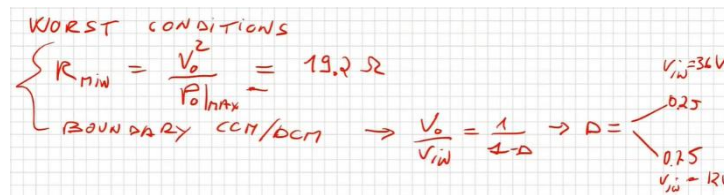 WORST CONDITIONS
R_MIN = V_o^2 / P_o|_MAX = 19.2 Ω
V_iN = 36V
BOUNDARY CCM/DCM → V_o / V_iN = 1 / 1-D → D = 0.25
0.75
V_iN = 12V